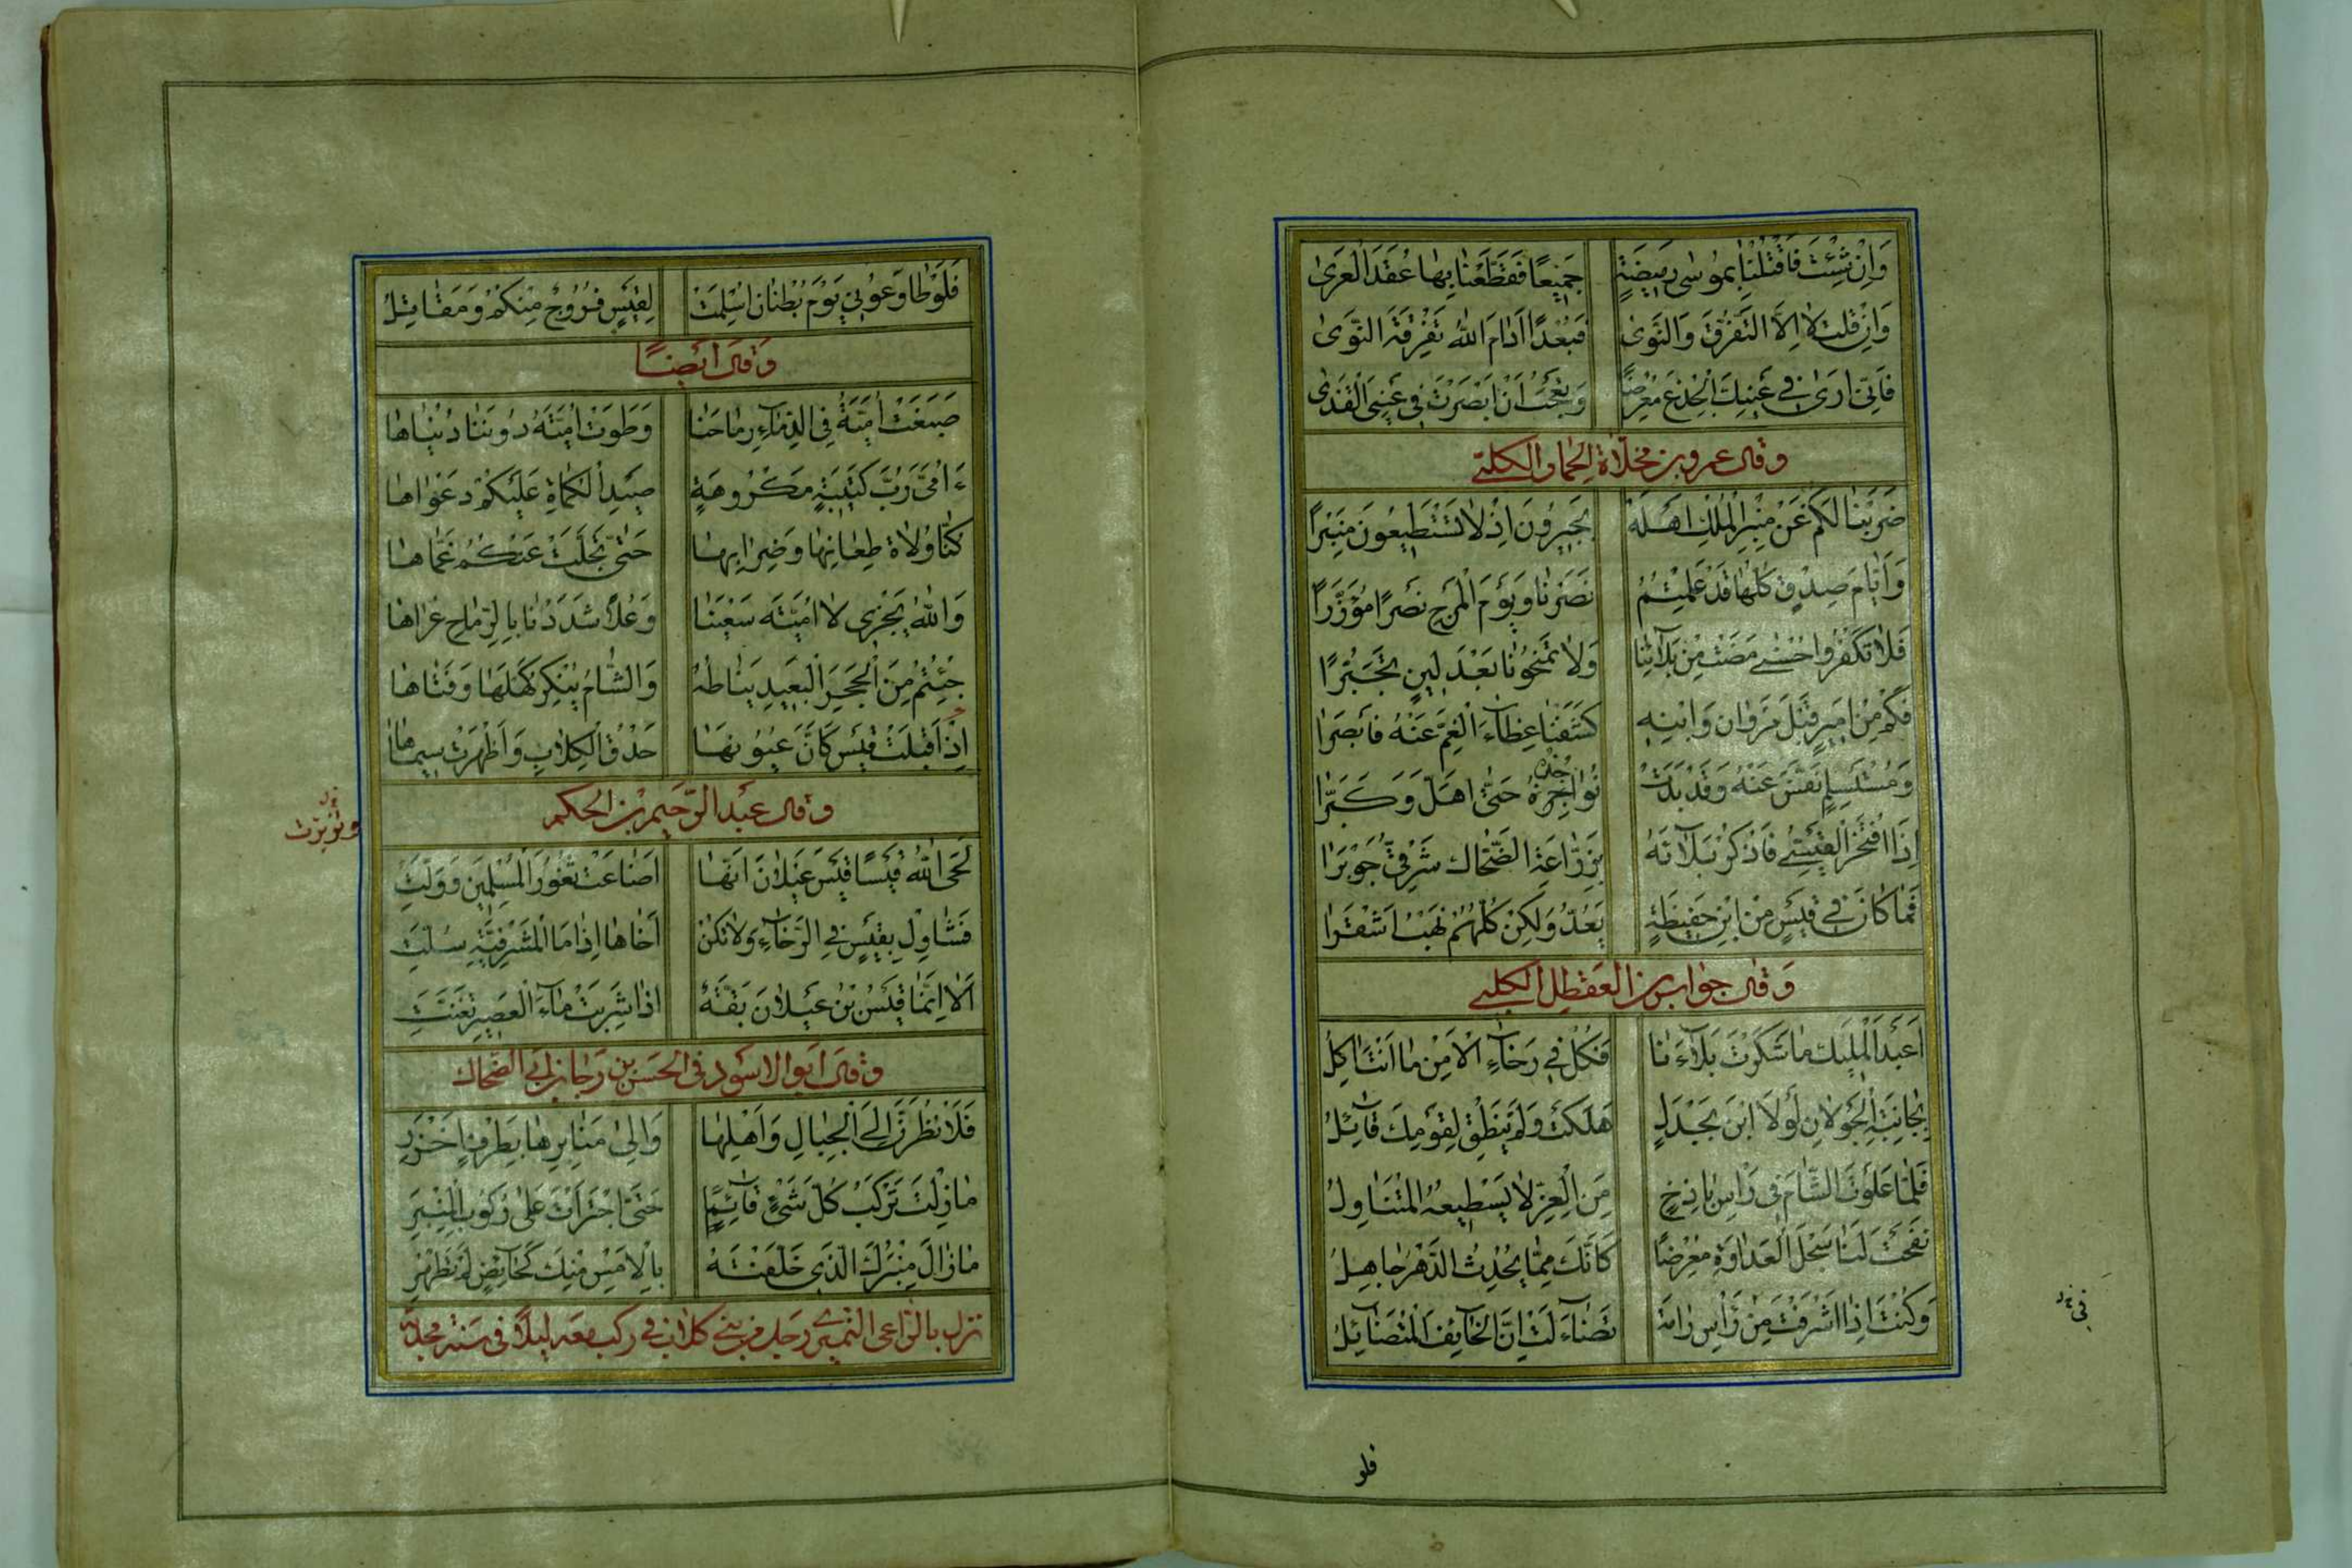 وَاِنْ شِئْتَ فَاقْتُلْنَا بِمُوسٰى رَمِيضَةٍ جَمِيعًا فَقَطِّعْنَا بِهَا عُقَدَ الْعُرٰى
وَاِنْ قُلْتَ لَا اِلَّا التَّفَرُّقَ وَالنَّوٰى فَبُعْدًا اَدَامَ اللّٰهُ تَفْرِقَةَ النَّوٰى
فَاِنّى اَرٰى فِي عَيْنِكَ الْجِذْعَ مُعْرِضًا وَتَعْجَبُ اَنْ اَبْصَرْتَ فِي عَيْنِىَ الْقَذٰى
وقال عمرو بن مخلاة الحمار الكلبي
ضَرَبْنَا لَكُمْ عَنْ مِنْبَرِ الْمُلْكِ اَهْلَهُ بِجَيْرُونَ اِذْ لَا تَسْتَطِيعُونَ مِنْبَرًا
وَاَيَّامَ صِدْقٍ كُلَّهَا قَدْ عَلِمْتُمُ نَصَرْنَا وَيَوْمَ الْمَرْجِ نَصْرًا مُؤَزَّرًا
فَلَا تَكْفُرُوا حُسْنٰى مَضَتْ مِنْ بَلَائِنَا وَلَا تَمْنَحُونَا بَعْدَ لِينٍ تَجَبُّرًا
فَكَمْ مِنْ اَمِيرٍ قَبْلَ مَرْوَانَ وَابْنِهِ كَشَفْنَا غِطَاءَ الْغَمِّ عَنْهُ فَاَبْصَرَا
وَمُسْتَسْلِمٍ نَفَّسْنَ عَنْهُ وَقَدْ بَدَتْ نَوَاجِذُهُ حَتّٰى اَهَلَّ وَكَبَّرَا
اِذَا افْتَخَرَ الْقَيْسِيُّ فَاذْكُرْ بَلَاءَهُ بِزَرَّاعَةِ الضَّحَّاكِ شَرْقِيَّ جَوْبَرَا
فَمَا كَانَ فِي قَيْسٍ مِنِ ابْنِ حَفِيظَةٍ يُعَدُّ وَلٰكِنْ كُلُّهُمْ نَهْبُ اَشْقَرَا
وَقال جواس بن القعطل الكلبي
اَعَبْدَ الْمَلِيكِ مَا شَكَرْتَ بَلَاءَنَا فَكُلْ فِي رَخَاءِ الْاَمْنِ مَا اَنْتَ آكِلُ
بِجَابِيَةِ الْجَوْلَانِ لَوْلَا ابْنُ بَحْدَلٍ هَلَكْتَ وَلَمْ يَنْطِقْ لِقَوْمِكَ قَائِلُ
فَلَمَّا عَلَوْتَ الشَّامَ فِي رَأْسِ بَاذِخٍ مِنَ الْعِزِّ لَا يَسْطِيعُهُ الْمُتَنَاوِلُ
نَفَحْتَ لَنَا سَجْلَ الْعَدَاوَةِ مُعْرِضًا كَاَنَّكَ مِمَّا يُحْدِثُ الدَّهْرُ جَاهِلُ
وَكُنْتَ اِذَا اَشْرَفْتَ مِنْ رَأْسِ رَامَةٍ تَضَاءَلْتَ اِنَّ الْخَائِفَ الْمُتَضَائِلُ
فلو
فَلَوْ طَاوَعُونِي يَوْمَ بُطْنَانَ اُسْلِمَتْ لِقَيْسٍ فُرُوجٌ مِنْكُمْ وَمَقَاتِلُ
وَقال اَيْضًا
صَبَغَتْ اُمَيَّةُ فِي الدِّمَاءِ رِمَاحَنَا وَطَوَتْ اُمَيَّةُ دُونَنَا دُنْيَاهَا
ءَاُمَيَّ رُبَّ كَتِيبَةٍ مَكْرُوهَةٍ صِيدِ الْكُمَاةِ عَلَيْكُمُ دَعْوَاهَا
كُنَّا وُلَاةَ طِعَانِهَا وَضِرَابِهَا حَتّٰى تَجَلَّتْ عَنْكُمُ غُمَّاهَا
وَاللّٰهُ يَجْزِى لَا اُمَيَّةُ سَعْيَنَا وَعُلًا شَدَدْنَا بِالرِّمَاحِ عُرَاهَا
جِئْتُمْ مِنَ الْحَجَرِ الْبَعِيدِ نِيَاطُهُ وَالشَّامُ يُنْكِرُ كَهْلُهَا وَفَتَاهَا
اِذْ اَقْبَلَتْ قَيْسٌ كَاَنَّ عُيُونَهَا حَدَقُ الْكِلَابِ وَاَظْهَرَتْ سِيمَاهَا
وقال عبد الرّحيم بن الحكم
لَحَى اللّٰهُ قَيْسًا قَيْسَ عَيْلَانَ اِنَّهَا اَضَاعَتْ ثُغُورَ الْمُسْلِمِينَ وَوَلَّتِ
فَشَاوِلْ بِقَيْسٍ فِي الرَّخَاءِ وَلَا تَكُنْ اَخَاهَا اِذَا مَا الْمَشْرَفِيَّةُ سُلَّتِ
اَلَا اِنَّمَا قَيْسُ بْنُ عَيْلَانَ بَقَّةٌ اِذَا شَرِبَتْ مَاءَ الْعَصِيرِ تَغَنَّتِ
وقال ابو الاسود في الحسن بن رجاء بن ابي الضحاك
فَلَاَنْظُرَنَّ اِلَى الْجِبَالِ وَاَهْلِهَا وَاِلٰى مَنَابِرِهَا بِطَرْفٍ اَخْزَرِ
مَا زِلْتَ تَرْكَبُ كُلَّ شَيْءٍ قَائِمٍ حَتّٰى اجْتَرَأْتَ عَلٰى رُكُوبِ الْمِنْبَرِ
مَا زَالَ مِنْبَرُكَ الَّذِي خَلَّفْتَهُ بِالْاَمْسِ مِنْكَ كَحَائِضٍ لَمْ تَطْهُرِ
نزل بالراعي النميري رجل من بني كلاب في ركب معه ليلا في سنة مجدبة